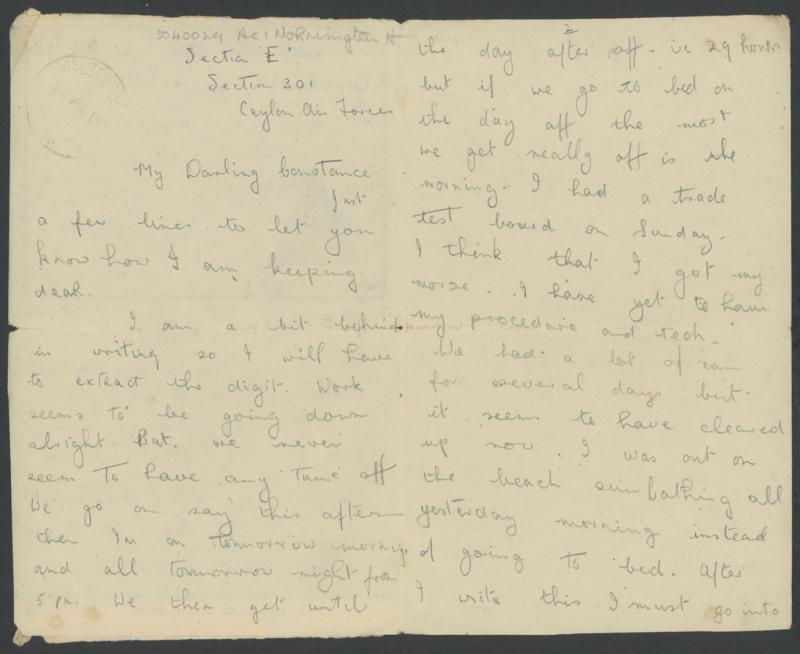 3040029 Ac1 Normington H
Section 'E'
Section 301
Ceylon Air Forces
My Darling Constance
Just
a few lines to let you
know how I am keeping
dear.
I am a bit behind
in writing so I will have
to extract the digit. Work
seems to be going down
alright But. we never
seem to have any time off
We go on say this afternoon
then I'm on tommorrow morning
and all tommorrow night from
5 pm. We then get until
2
the day after off - ie 29 hours
but if we go to bed on
the day off the most
we get really off is the
morning. I had a trade
test board on Sunday.
I think that I got my
morse. I have yet to have
my procedure and tech.
We had a lot of rain
for several days but
it seems to have cleared
up now. I was out on
the beach sunbathing all
yesterday morning instead
of going to bed. After
I write this I must go into